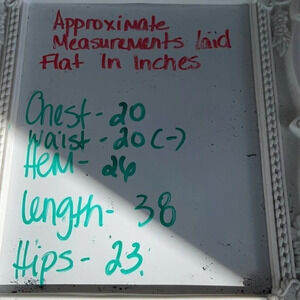 Approximate
Measurements laid
Flat In Inches
Chest - 20
Waist - 20 (-)
Hem - 26
Length - 38
Hips - 23.